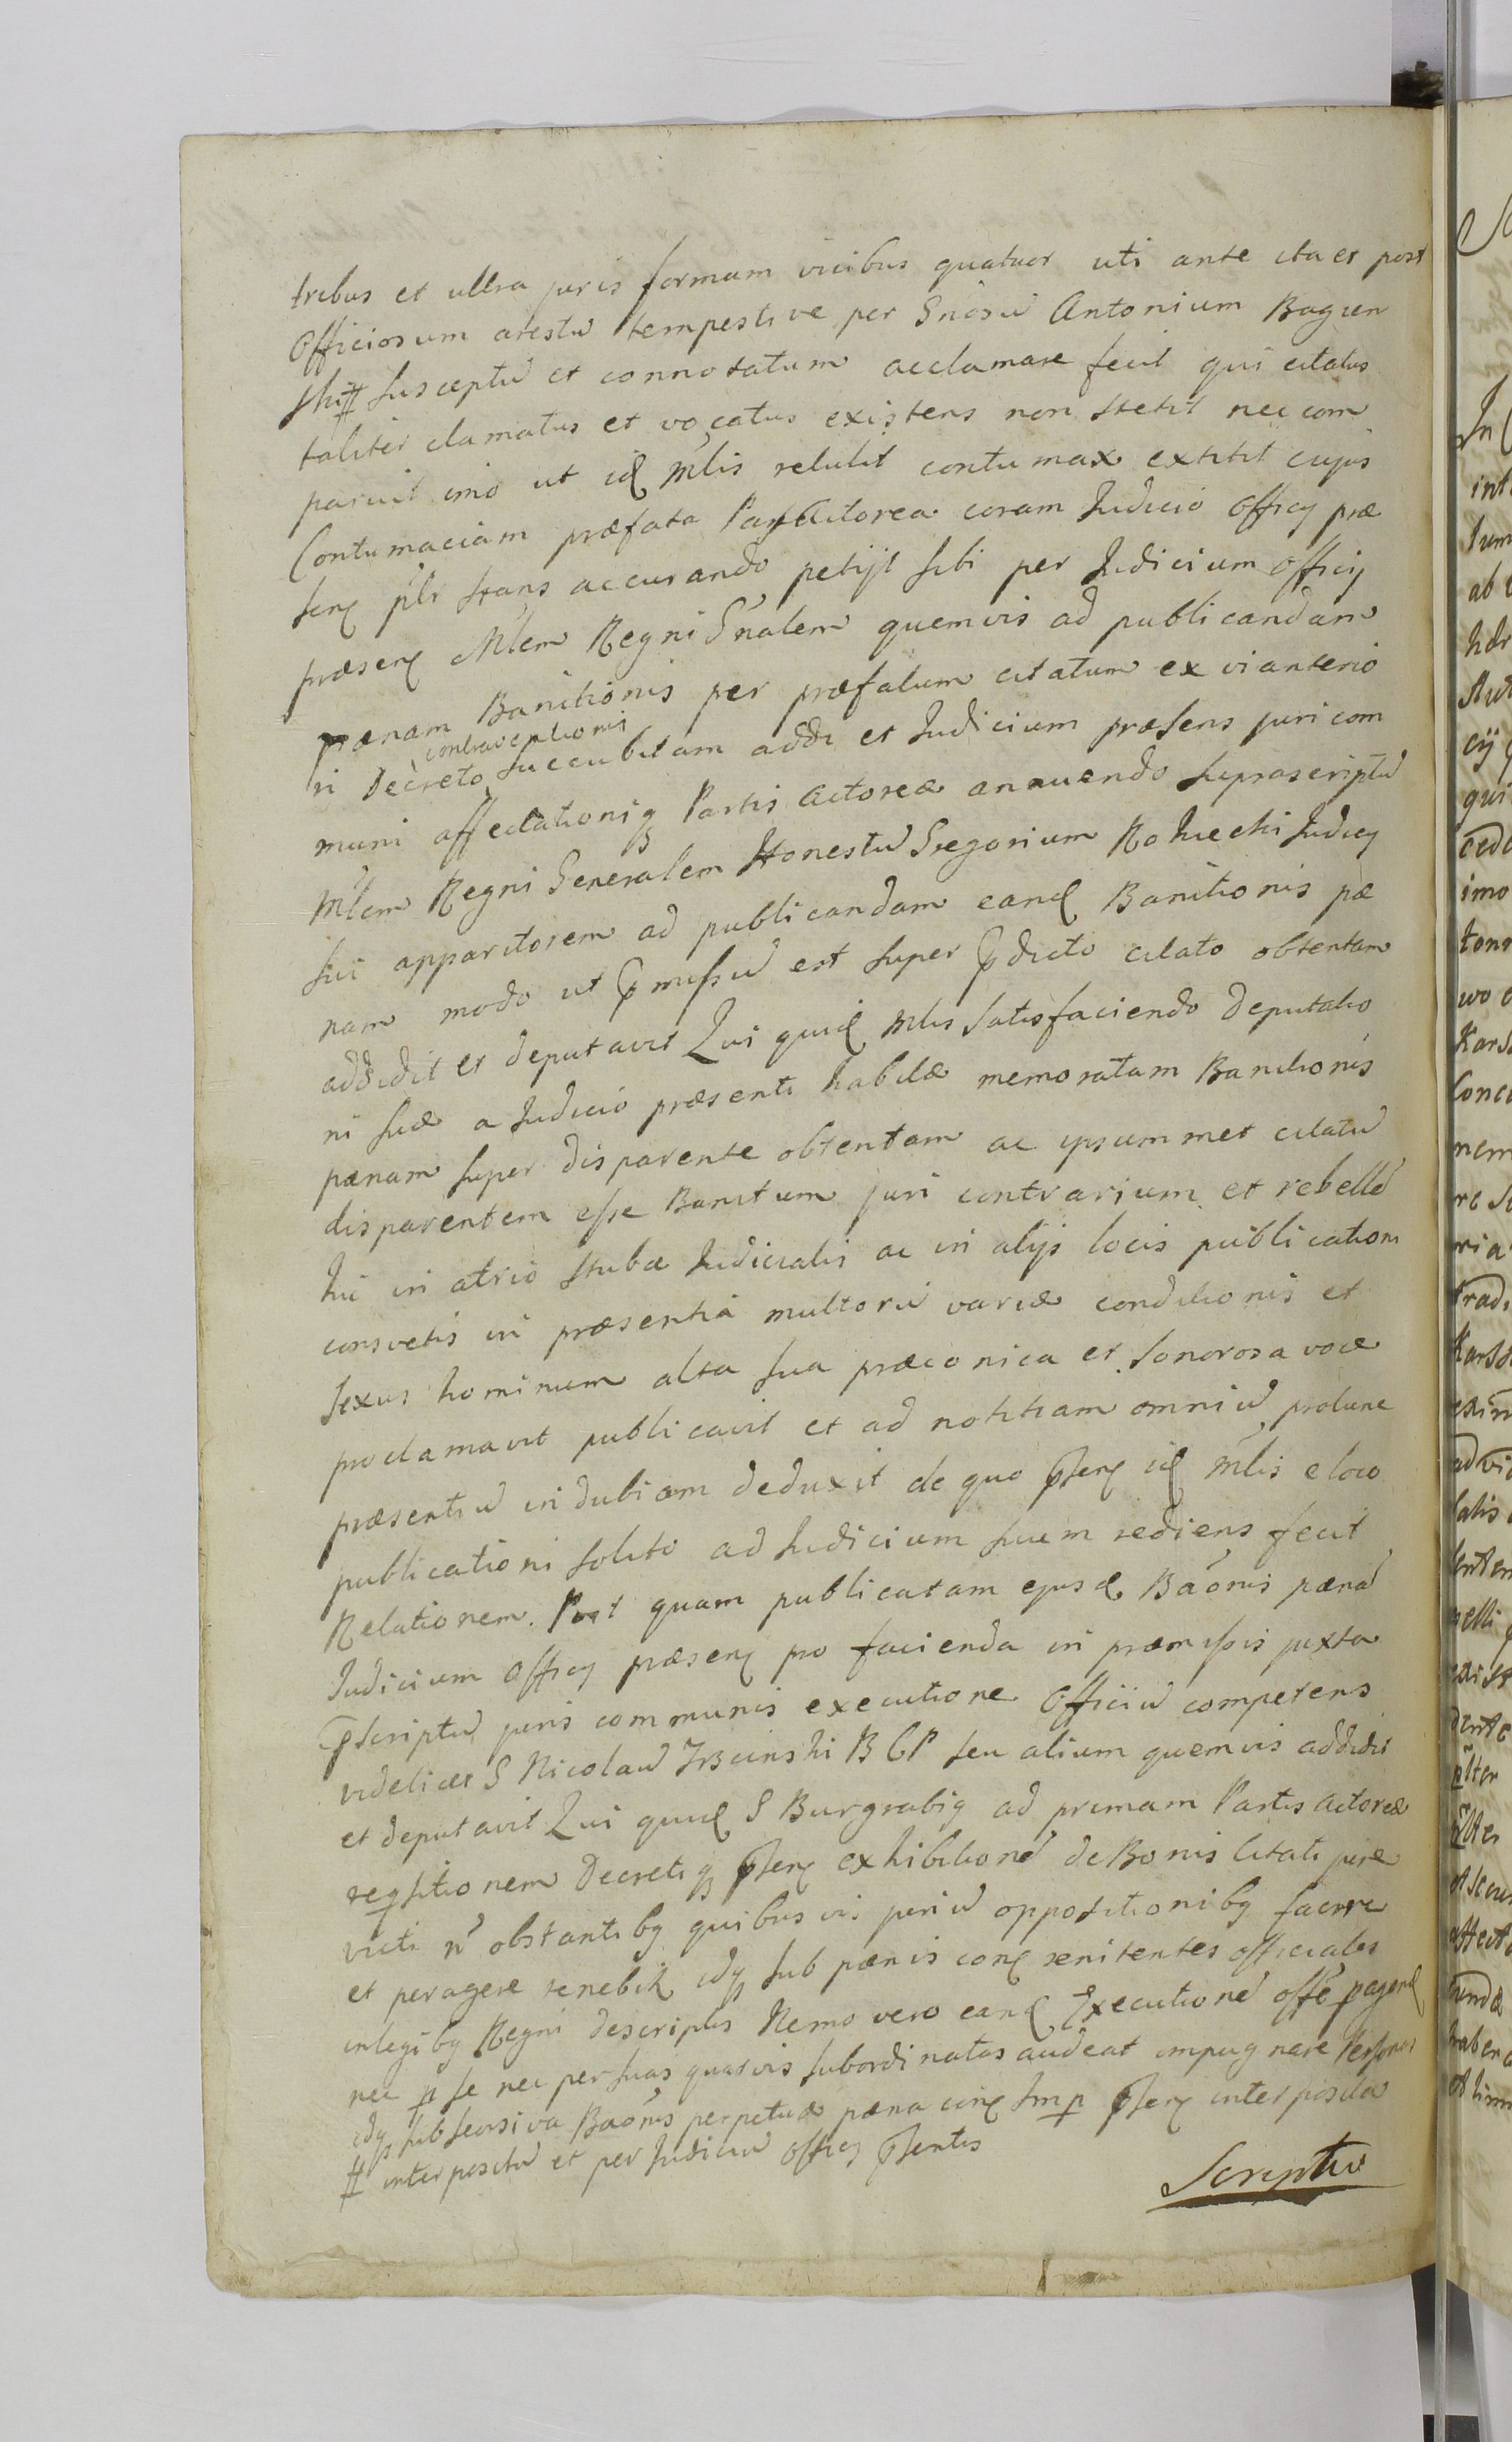 tribus et ultra juris formam vicibus quatuor uti ante ita et post
Officiosum arestū tempestive per Gnosū Antonium Bagien
ski # susceptū et connotatum acclamare fecit qui citatus
taliter clamatus et vocatus existens non stetit nec com
paruit imo ut idē Mlis retulit contumax extitit cujus
Contumaciam præfata Pars Actorea coram Judicio Officij præ
senē plr stans accusando petijt sibi per Judicium Officij
præsenē Mlem Regni Gnalem quemvis ad publicandam
pænam Banitionis per præfatum citatum ex vi anterio
contraventionis
ri Decreto succubitam addi et Judicium præsens juri com
muni affectationiq Partis Actoreæ annuendo suprascriptū
Mlem Regni Generalem Honestū Gregorium Judicij
sui apparitorem ad publicandam eandē Banitionis pæ
nam modo ut præmissū est super pdicto citato obtentam
addidit et deputavit Qui quidē Mlis satisfaciendo deputatio
ni suæ a Judicio præsenti habitæ memoratam Banitionis
pænam super disparente obtentam ac ipsummet citatū
disparentem esse Banitum juri contrarium et rebellē
hic in atrio stubæ Judicialis ac in alijs locis publicationi
consvetis in præsentia multorū variæ conditionis et
sexus hominum alta sua præconica et sonorosa voce
proclamavit publicavit et ad notitiam omniū protunc
præsentiū indubiam deduxit de quo psenē idē Mlis e loco
publicationi solito ad Judicium suum rediens fecit
Relationem. Post quam publicatam ejusdē Baōnis pænā
Judicium Officij præsenē pro facienda in præmissis juxta
pscriptū juris communis executione Officiū competens
videlicet G Nicolaū B C P seu alium quemvis addidit
et deputavit Qui quidē G Burgrabiq ad primam Partis Actoreæ
reqsitionem Decretiq psenē exhibitionē de Bonis Citati jure
victi n obstantibq quibusvis juriū oppositionibq facere
et peragere tenebit idq sub pænis conē renitentes officiales
in legibq Regni descriptis Nemo vero eandē Executionē offē pagendē
nec p se nec per suas quasvis subordinatas audeat impugnare Personas
idq sub seorsiva Baōnis perpetuæ pæna conē Imp psenē interposita
# interpositū et per Judiciū Officij psentis
Scriptū